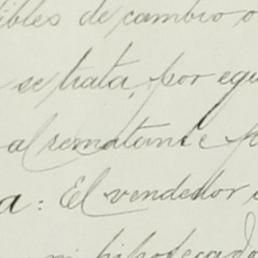 ibles de cambio o
se trata, por equ
al rematante
a: El vendedor
ni hipotecado